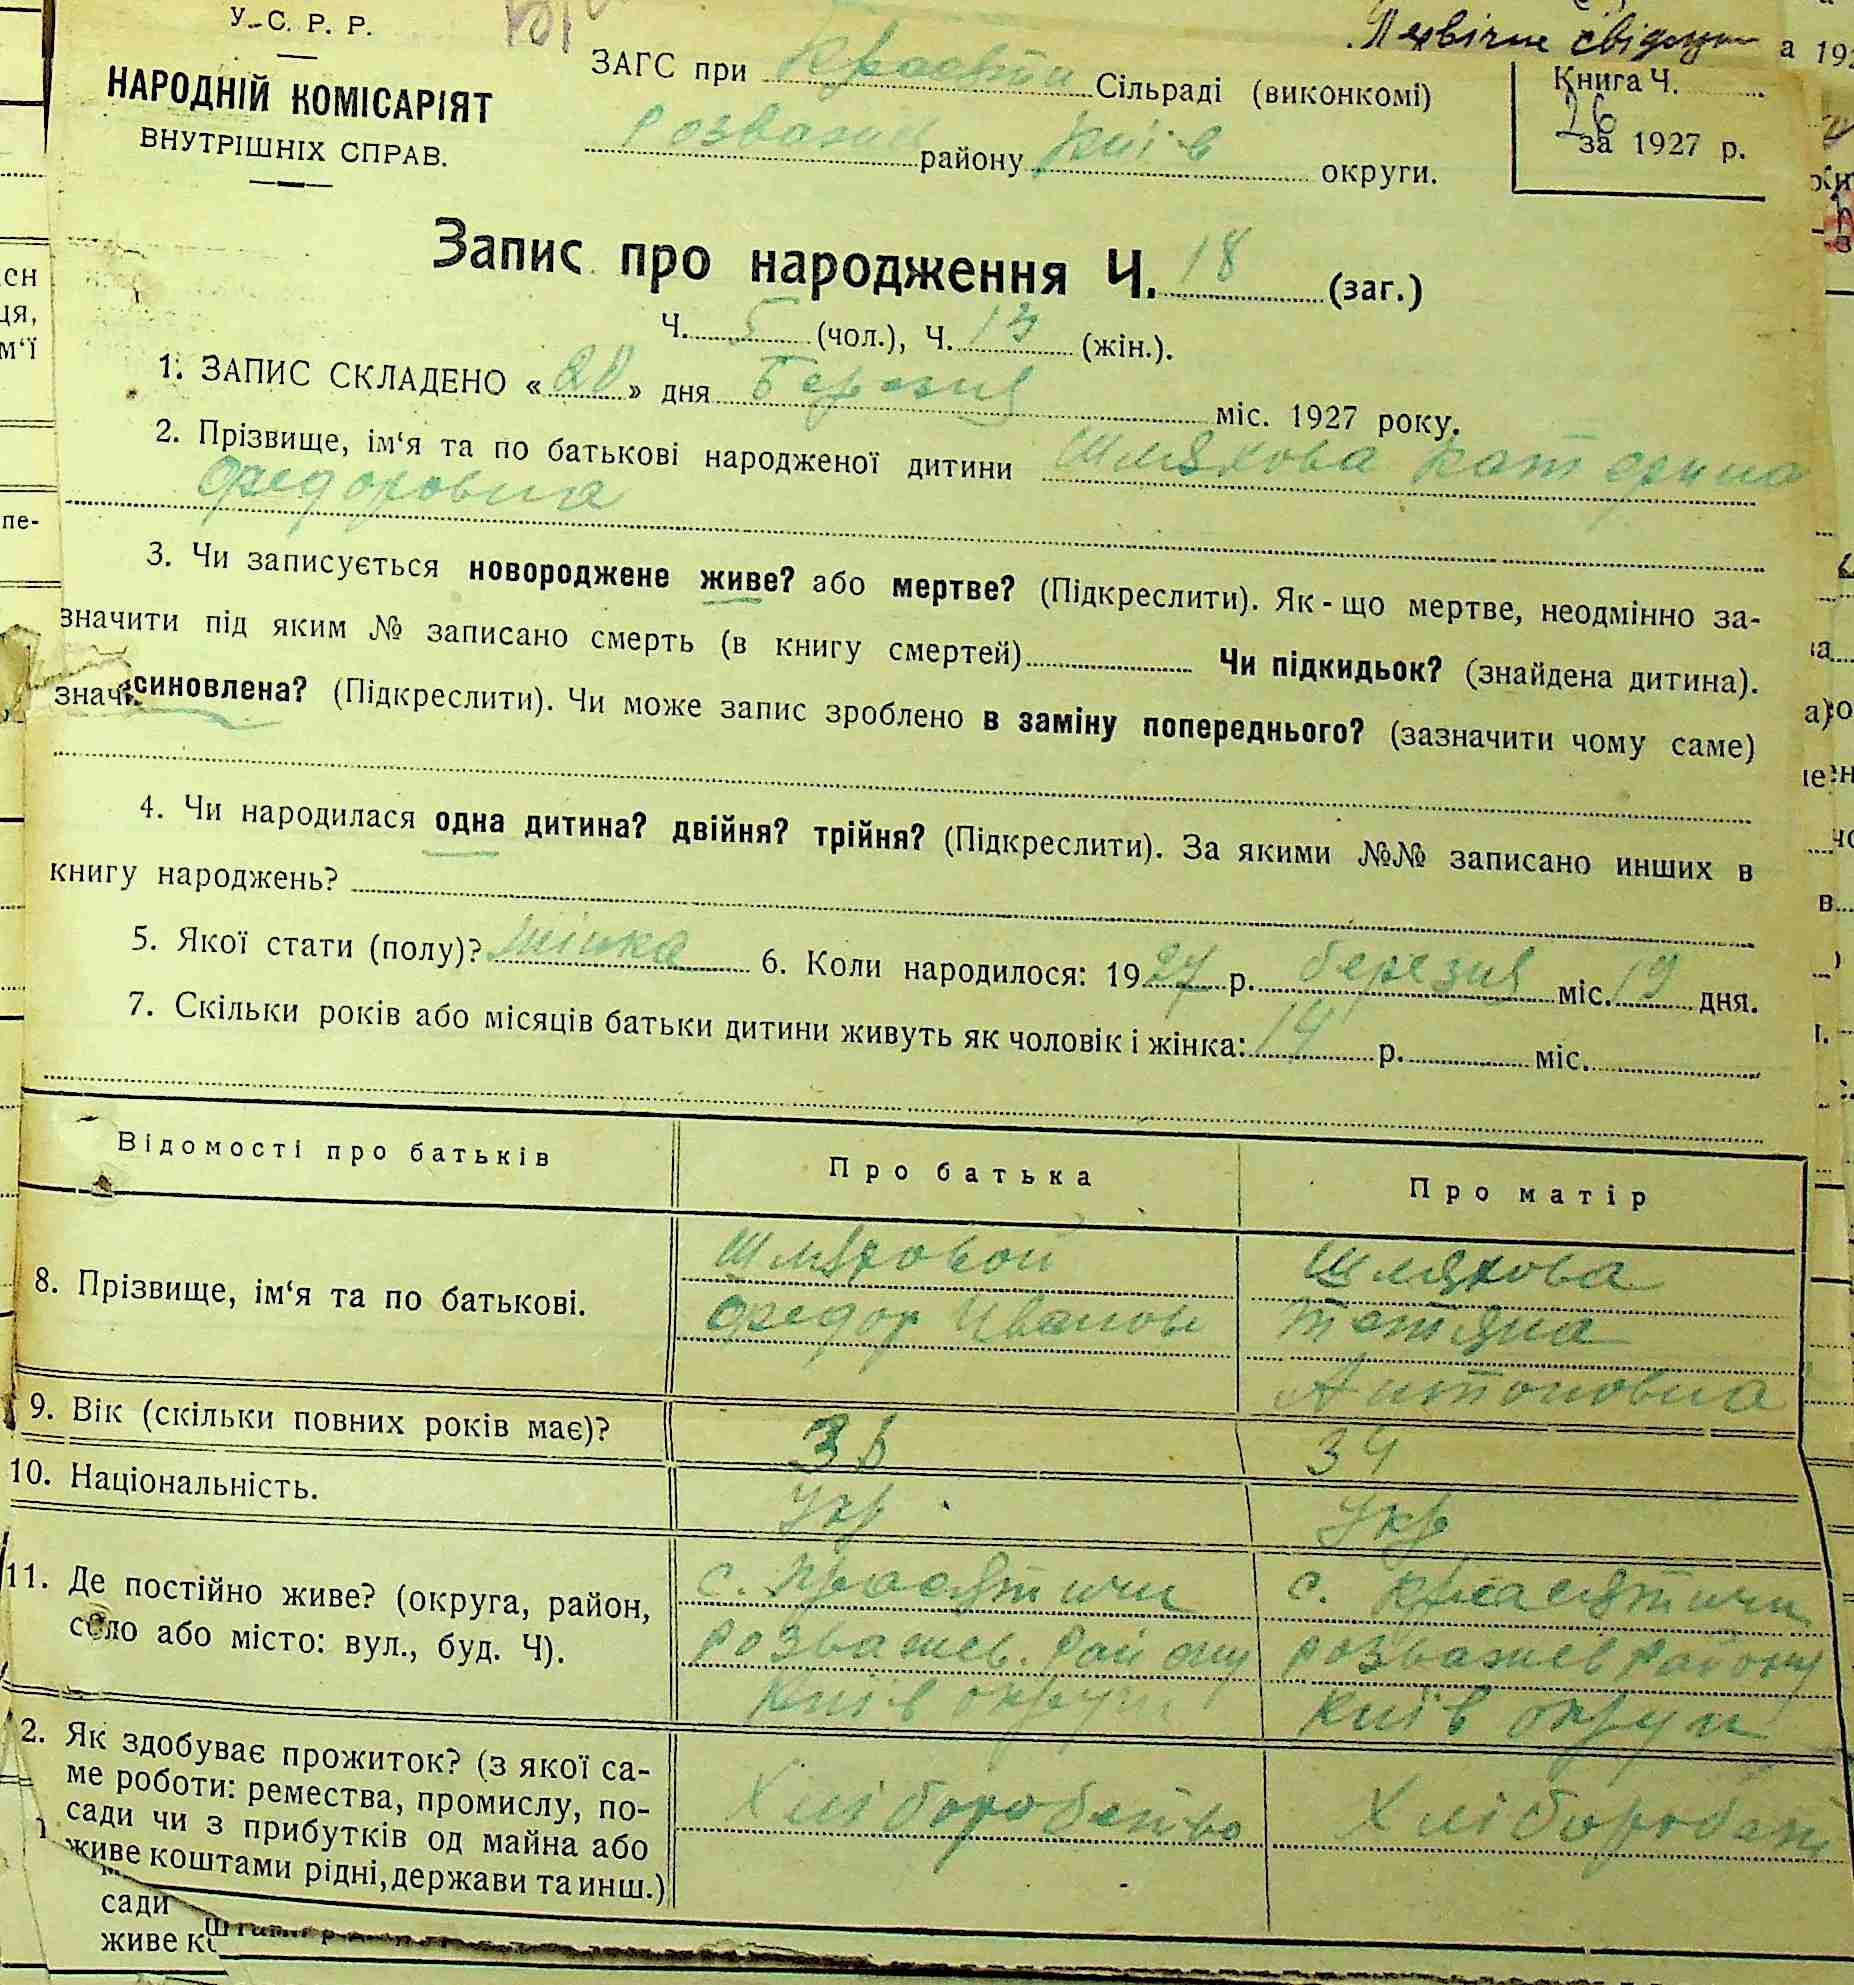 У.С.Р.Р.
НАРОДНІЙ КОМІСАРІЯТ
ВНУТРІШНІХ СПРАВ.
ЗАГС при Красяти Сільраді (виконкомі)
Розважив району Київ округи.
Книга Ч. 26
за 1927 р.
Запис про народження Ч. 18 (заг.)
Ч. 5 (чол.), Ч. 13 (жін.).
1. ЗАПИС СКЛАДЕНО «20» дня Березня міс. 1927 року.
2. Прізвище, ім‘я та по батькові народженої дитини Шляхова Катерина
Федоровна
3. Чи записується новороджене живе? або мертве? (Підкреслити). Як-що мертве, неодмінно за-
значити під яким № записано смерть (в книгу смертей) Чи підкидьок? (знайдена дитина).
синовлена? (Підкреслити). Чи може запис зроблено в заміну попереднього? (зазначити чому саме)
4. Чи народилася одна дитина? двійня? трійня? (Підкреслити). За якими №№ записано инших в
книгу народжень?
5. Якої стати (полу)? жінка 6. Коли народилося: 1927 р. березня міс. 19 дня.
7. Скільки років або місяців батьки дитини живуть як чоловік і жінка: 14 р. міс.
Відомості про батьків Про батька Про матір
8. Прізвище, ім‘я та по батькові.
Шляховой
Федор Иванов
Шляхова
Тетяна
Антоновна
9. Вік (скільки повних років має)? 34
10. Національність. Укр Укр
11. Де постійно живе? (округа, район,
село або місто: вул., буд. Ч).
с. Красятичи
розважев. району
Київ округи
с. Красятичи
розважев району
Київ округи
2. Як здобуває прожиток? (з якої са-
ме роботи: ремества, промислу, по-
сади чи з прибутків од майна або
живе коштами рідні, держави та инш.)
Хліборобство
Хліборобст
сади
живе к